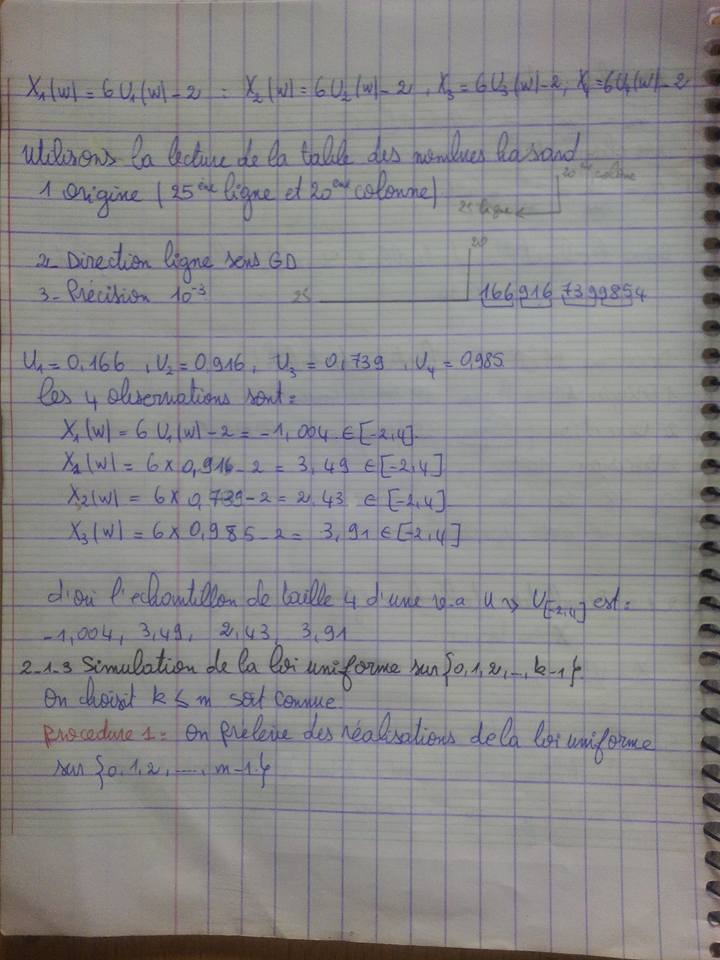 X₁(w) = 6U₁(w) - 2 : X₂(w) = 6U₂(w) - 2, X₃ = 6U₃(w) - 2; X₄ = 6U₄(w) - 2
Utilisons la lecture de la table des nombres hasard
1 Origine (25ème ligne et 20ème colonne)
20ème colonne
25 ligne
2- Direction ligne sens GD
20
3- Précision 10⁻³
25
166916 7399854
U₁ = 0,166 , U₂ = 0,916 , U₃ = 0,739 , U₄ = 0,985
les 4 observations sont:
X₁(w) = 6 U₁(w) - 2 = -1,004 ∈ [-2,4].
X₂(w) = 6 × 0,916 - 2 = 3,49 ∈ [-2,4]
X₂(w) = 6 × 0,739 - 2 = 2,43 ∈ [-2,4]
X₃(w) = 6 × 0,985 - 2 = 3,91 ∈ [-2,4]
d'où l'echantillon de taille 4 d'une v.a U ↝ U[-2,4] est:
-1,004, 3,49, 2,43, 3,91
2-1-3 Simulation de la loi uniforme sur {0,1,2,...,k-1}
On choisit k ≤ m soit connue.
procedure 1: On prélève des réalisations de la loi uniforme
sur {0,1,2,....,m-1}